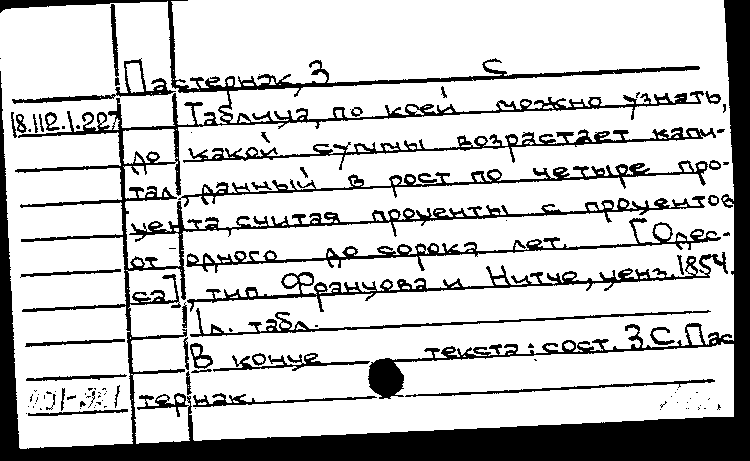 Пастернак, З С
18.112.1.227 Таблица, по коей можно узнать,
до какой суммы возрастает капи-
тал, данный в рост по четыре про-
цента, считая проценты с процентов
от одного до сорока лет. [Одес-
са], тип. Францова и Нитче, ценз. 1854.
1 л. табл.
В конце текста: сост. З.С. Пас
тернак.